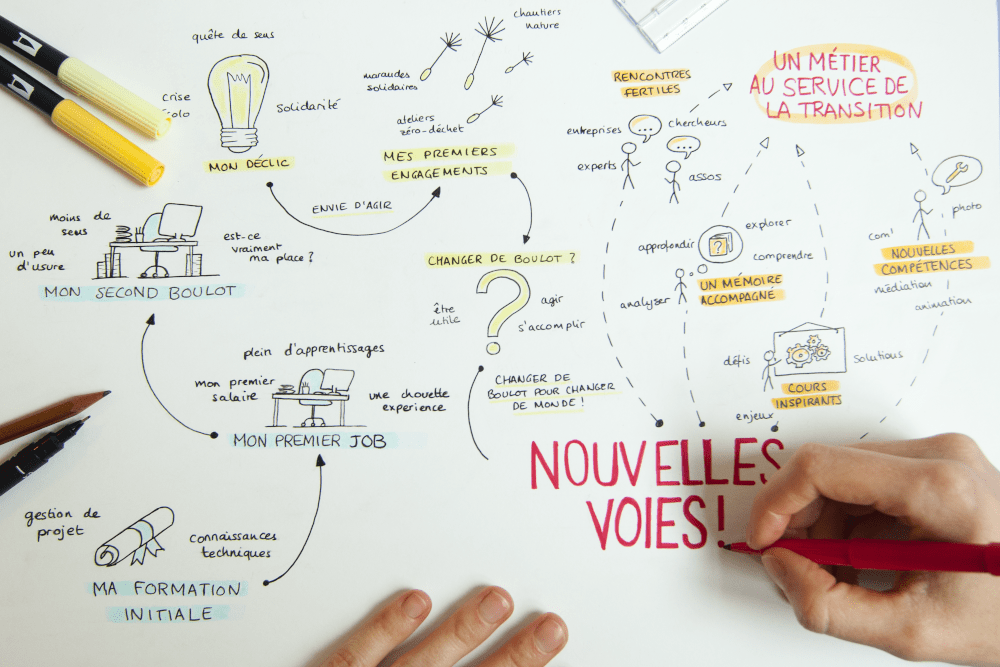 quête de sens
crise
solidarité
MON DÉCLIC
chantiers
nature
maraudes
solidaires
ateliers
zéro-déchet
MES PREMIERS
ENGAGEMENTS
ENVIE D'AGIR
RENCONTRES
FERTILES
entreprises
chercheurs
experts
assos
UN MÉTIER
AU SERVICE DE
LA TRANSITION
photo
com'
NOUVELLES
COMPÉTENCES
médiation
animation
moins de
sens
un peu
d'usure
est-ce
vraiment
ma place ?
MON SECOND BOULOT
CHANGER DE BOULOT ?
être
utile
agir
s'accomplir
approfondir
explorer
comprendre
analyser
UN MÉMOIRE
ACCOMPAGNÉ
plein d'apprentissages
mon premier
salaire
une chouette
experience
MON PREMIER JOB
CHANGER DE
BOULOT POUR CHANGER
DE MONDE !
défis
solutions
COURS
INSPIRANTS
enjeux
NOUVELLES
VOIES !
gestion de
projet
connaissances
techniques
MA FORMATION
INITIALE